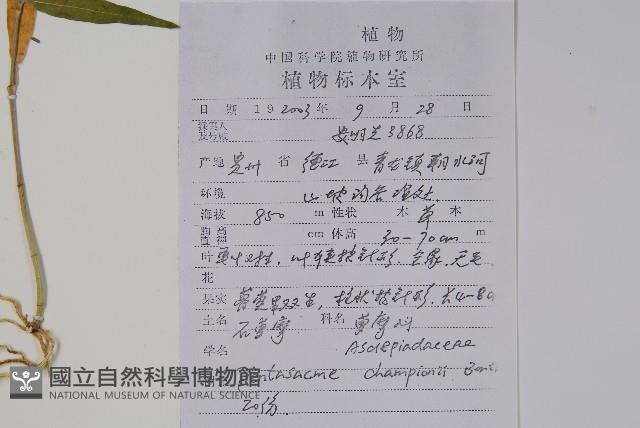 植物
中国科学院植物研究所
植物标本室
日期 19 2003年 9月 28日
采集人及号数 安明态 3868
产地 贵州 省 德江 县 青龙镇 朝水河
环境 山坡沟谷 灌丛
海拔 850 m 性状 木 草 本
胸高直径 cm 体高 30-70cm m
叶 单叶对生，叶 披针形 全缘 无毛
花
果实 蓇葖果双生，柱状披针形，长4-8c
土名 石萝摩 科名 萝摩科
学名 Asclepiadaceae
Pentasacme championii Bent
20份.
國立自然科學博物館
NATIONAL MUSEUM OF NATURAL SCIENCE